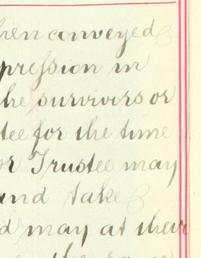 hen conveyed
pression in
the survivors or
tee for the time
or Trustee may
and take
d may at their